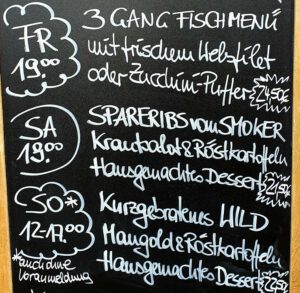 FR
19.00
3 GANG FISCHMENÜ
mit frischem Welsfilet
oder Zucchini-Puffer 24,50€
SA
19.00
SPARERIBS vom SMOKER
Krautsalat & Röstkartoffeln
Hausgemachtes Dessert 21,50€
SO*
12-17.00
*auch ohne
Voranmeldung
Kurzgebratenes WILD
Mangold & Röstkartoffeln
Hausgemachtes Dessert